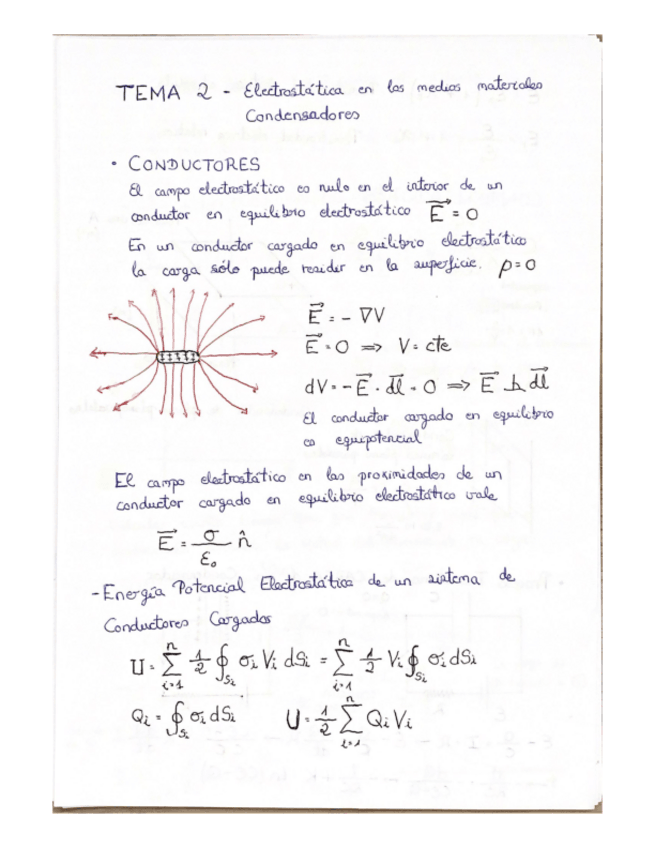 TEMA 2 - Electrostática en los medios materiales
Condensadores
• CONDUCTORES
El campo electrostático es nulo en el interior de un
conductor en equilibrio electrostático E⃗ = 0
En un conductor cargado en equilibrio electrostático
la carga sólo puede residir en la superficie. ρ=0
E⃗ = - ∇V
E⃗ = 0 ⇒ V = cte
dV = -E⃗ · dl⃗ = 0 ⇒ E⃗ ⊥ dl⃗
El conductor cargado en equilibrio
es equipotencial
El campo electrostático en las proximidades de un
conductor cargado en equilibrio electrostático vale
E⃗ = σ/ε₀ n̂
- Energía Potencial Electrostática de un sistema de
Conductores Cargados
U = ∑ᵢ₌₁ⁿ 1/2 ∮Sᵢ σᵢ Vᵢ dSᵢ = ∑ᵢ₌₁ⁿ 1/2 Vᵢ ∮Sᵢ σᵢ dSᵢ
Qᵢ = ∮Sᵢ σᵢ dSᵢ U = 1/2 ∑ᵢ₌₁ⁿ Qᵢ Vᵢ